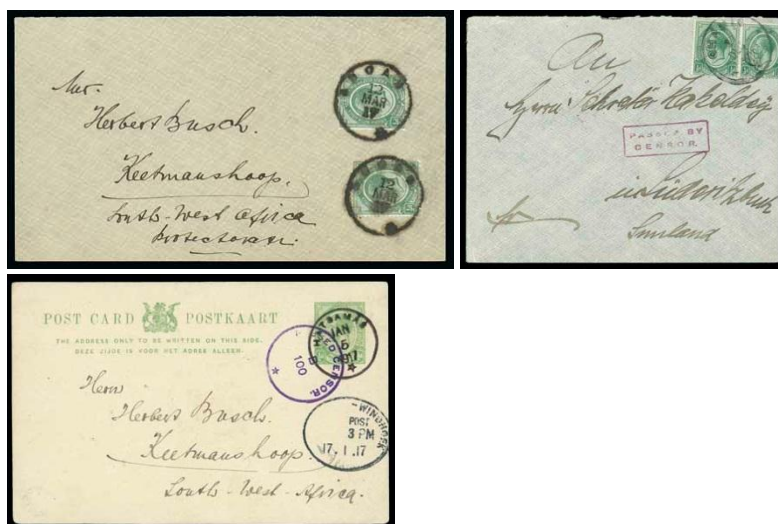 Mr.
Herbert Busch.
Keetmanshoop.
South-West Africa
Protectorate.
12
MAR
17
12
MAR
17
An
Herrn
PASSED BY
CENSOR.
in Lüderitzbucht
POST CARD POSTKAART
THE ADDRESS ONLY TO BE WRITTEN ON THIS SIDE.
DEZE ZIJDE IS VOOR HET ADRES ALLEEN.
JAN
5
917
CENSOR.
B
100
WINDHOEK
POST
3 PM
17.1.17
Herrn
Herbert Busch.
Keetmanshoop.
South-West-Africa.